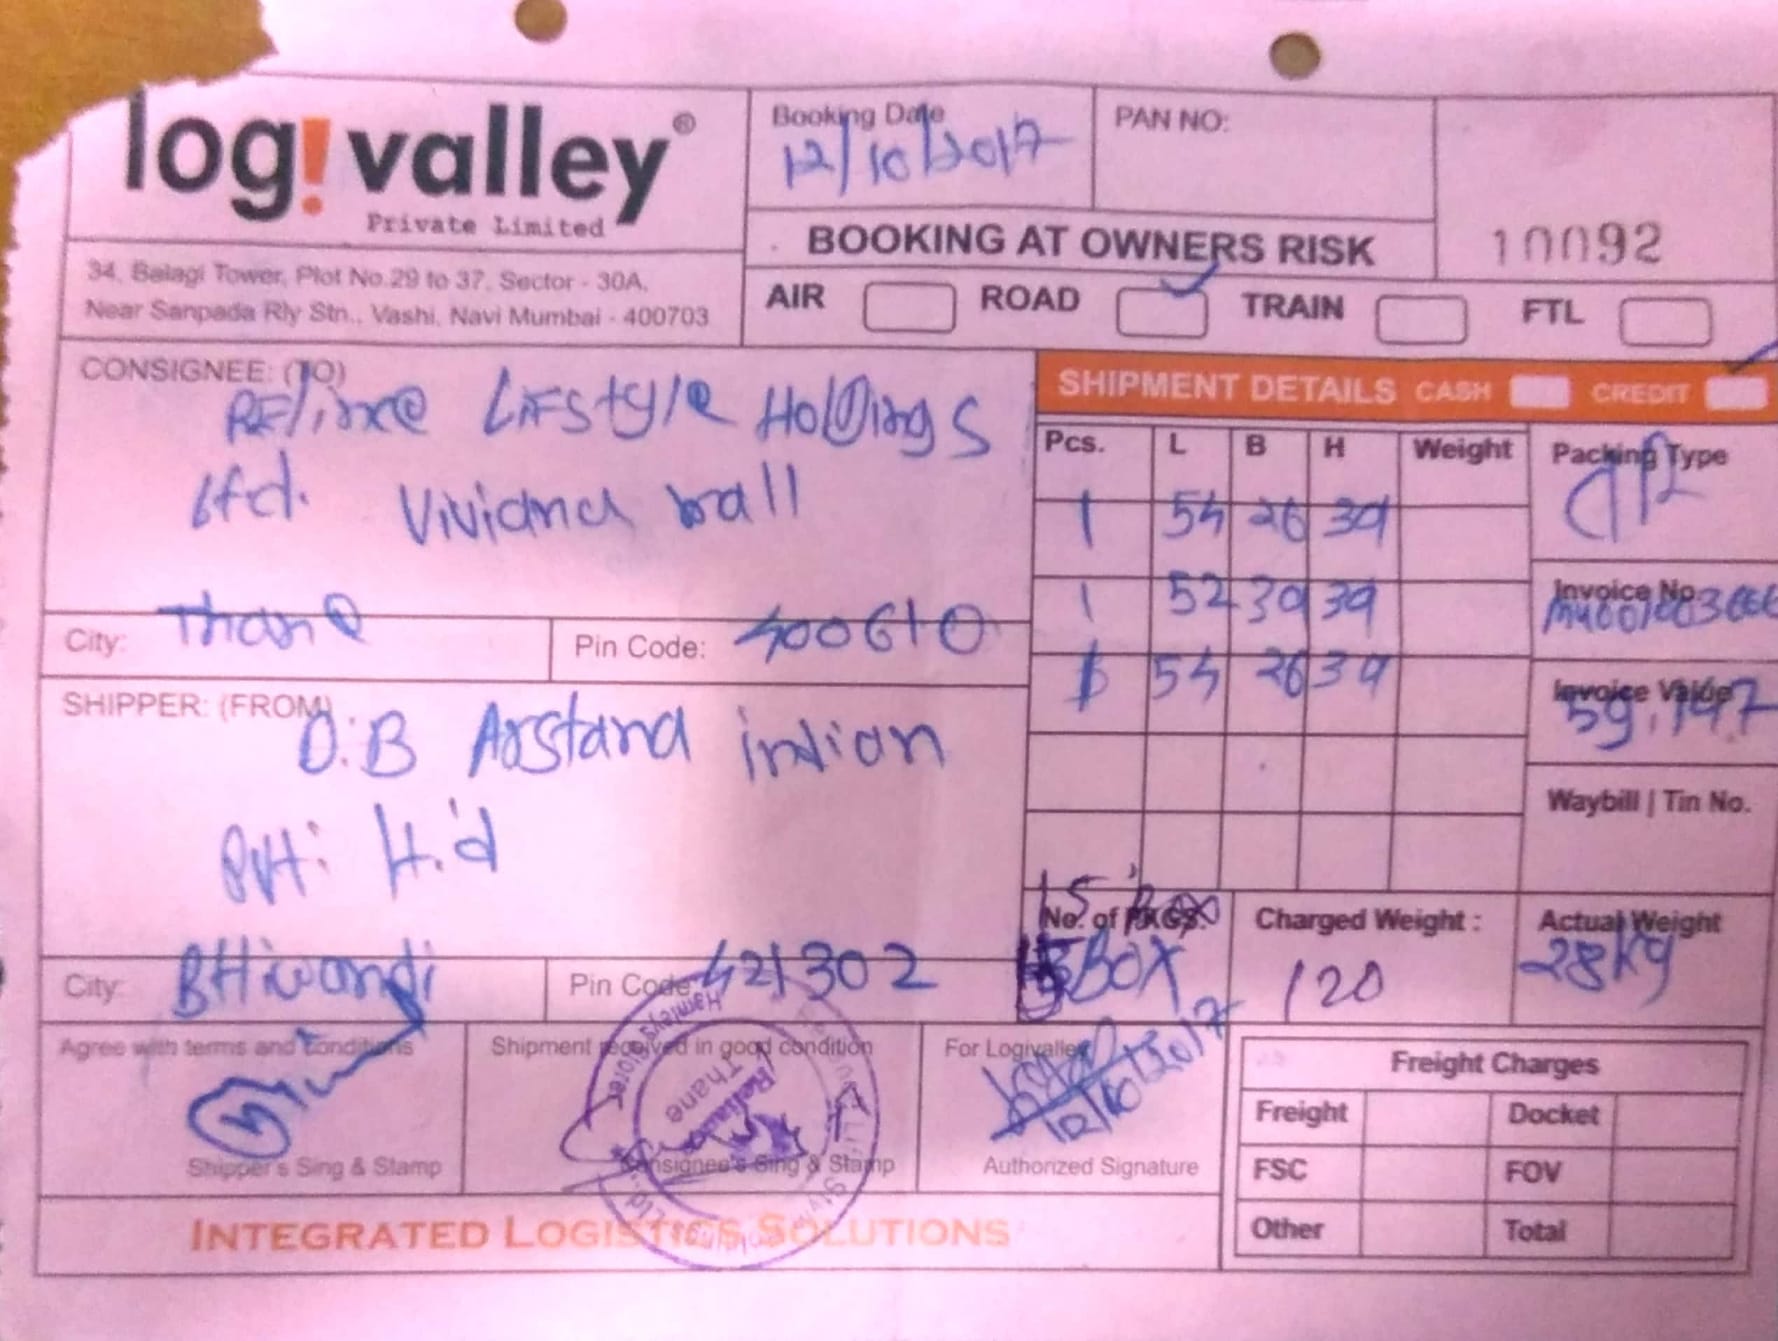 log!valley®
Private Limited
34, Balagi Tower, Plot No.29 to 37, Sector - 30A,
Near Sanpada Rly Stn., Vashi, Navi Mumbai - 400703
Booking Date
12/10/2017
PAN NO:
10092
BOOKING AT OWNERS RISK
AIR ROAD TRAIN FTL
CONSIGNEE: (TO)
LifEstyle Holdings
Ltd. Viviana
City: Thane Pin Code: 400610
SHIPPER: (FROM)
O.B indian
Pvt. Ltd
City: BHiwandi Pin Code: 421302
SHIPMENT DETAILS CASH CREDIT
Pcs. L B H Weight
1 54 26 39
1 52 39 39
54 26 39
Packing Type
Invoice No.
Invoice Value
59,147
Waybill | Tin No.
No. of PKGS.
BOX
Charged Weight :
120
Actual Weight
28Kg
Agree with terms and conditions
Shipper's Sing & Stamp
Shipment received in good condition
Consignee's Sing & Stamp
Hamleys Store
Reliance
Thane
For Logivalley
12/10/2017
Authorized Signature
Freight Charges
Freight Docket
FSC FOV
Other Total
INTEGRATED LOGISTICS SOLUTIONS